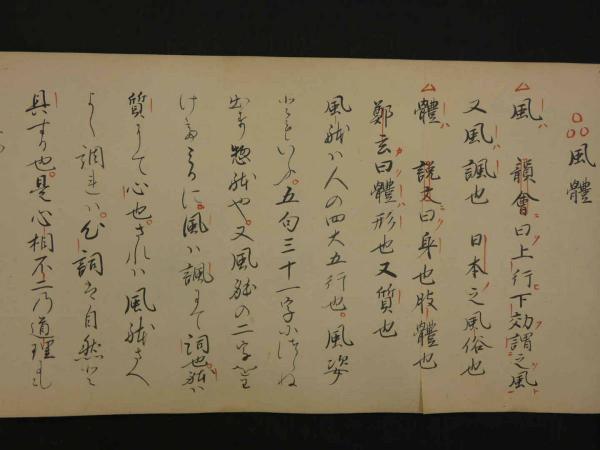 風體
風ハ 韻會ニ曰ク上行下効謂之風ト
又風ハ諷也 日本之風俗也
體ハ 説文ニ曰ク身也肢體也
鄭玄曰體ハ形也又質也
風躰ハ人の四大五行也風姿
といふ五句三十一字につらね
出す惣躰や又風躰の二字を
に風ハ諷にて詞也躰ハ
質にて心也されハ風躰さへ
よく調れハ心詞は自然と
具する也是心相不二乃道理